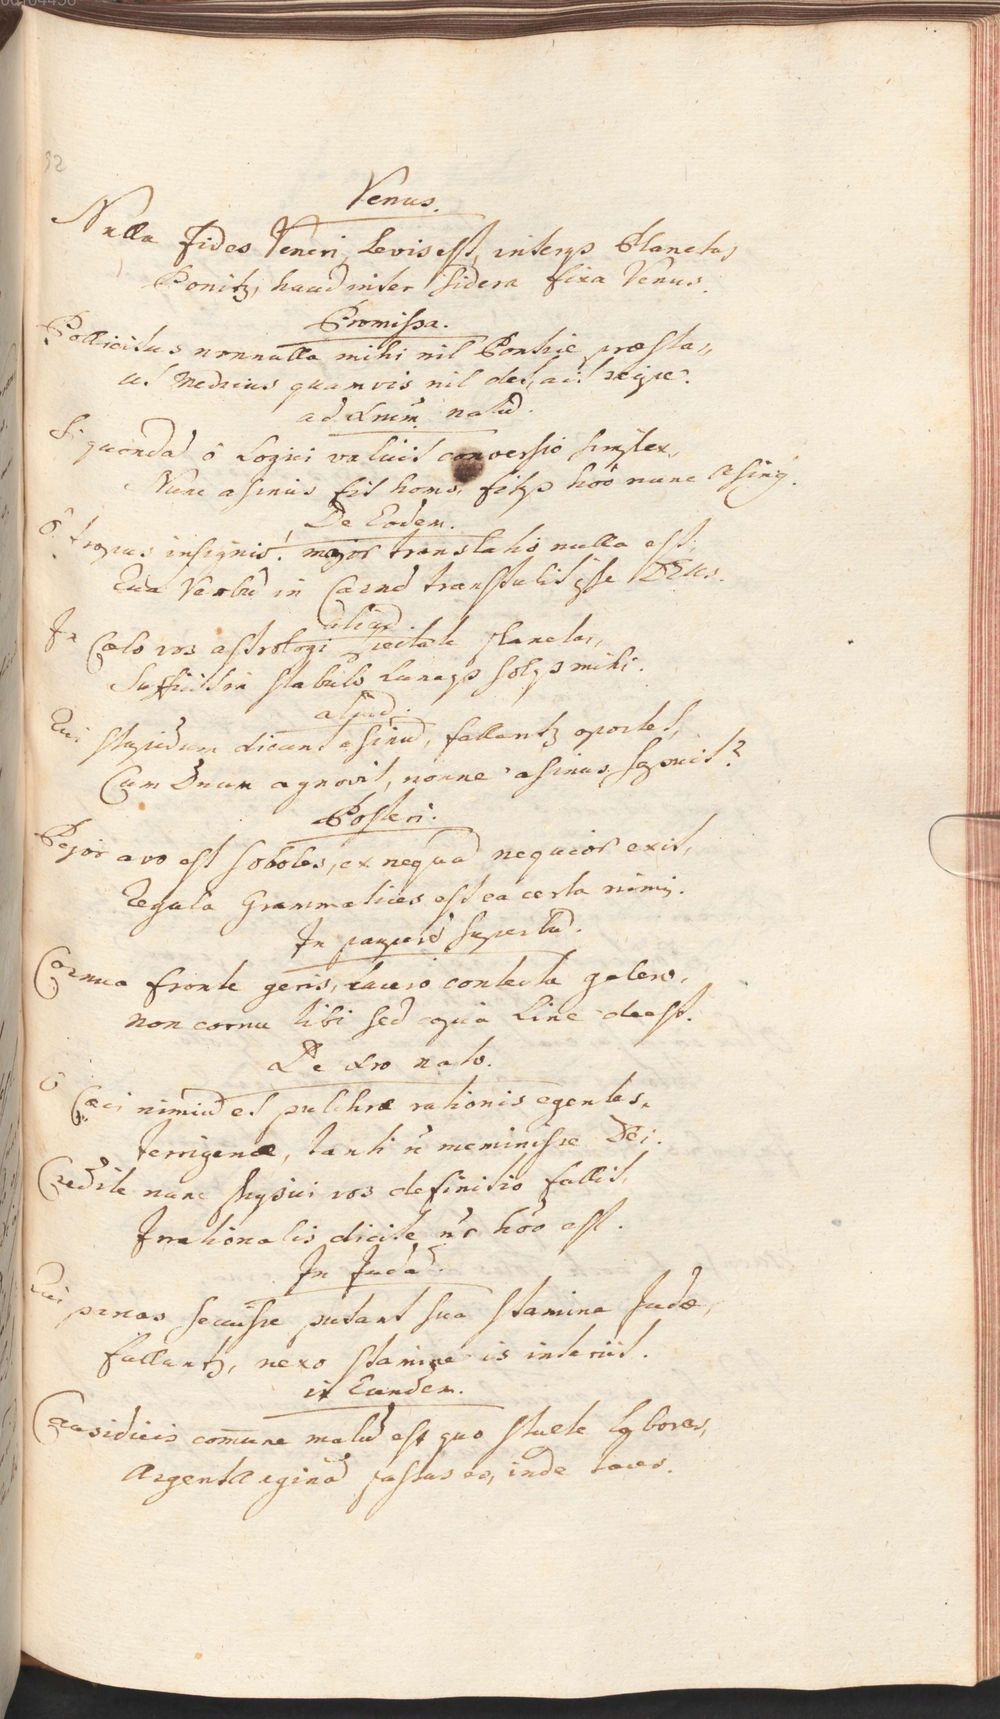 92
Venus.
Nulla fides Veneri, Levis est, interqs Planetas
Ponitz, haud inter sidera fixa Venus.
Promissa.
Pollicitus nonnulla mihi nil Pontice praestas,
ut Medicus quamvis nil det, ait recipe.
ad Xrum natū.
Si quondā ô Logici valuit conversio simplex,
Nunc asinus fit homo, fitqs hoo nunc asing.
De Eodem.
ô tropus insignis! major translatio nulla est,
Verbū in Carnē transtulit ipse Deus.
aliud
In Caelo vos astrologi planetas,
Sufficit in stabulo Lunaqs solqs mihi.
aliud.
Qui stupidum dicunt asinū, fallantz oportet,
Cum Dnum agnovit, nonne asinus sapuit?
Posteri.
Pejor avo est soboles, ex nequā nequior exit,
Regula Grammatices est ea certa nimis.
In pauperē superbū.
Cornua fronte geris, lacero contecta galero,
non cornu tibi sed copia Line deest.
De Xro nato.
ô Caeci nimiū et pulchrae rationis egentes,
Terrigenae, tanti ñ meminisse Dei.
Credite nunc physici vos definitio fallit,
Irrationalis dicite, hoo est.
In Judā.
Qui parcas secuisse putant sua stamina Judae,
falluntz, nexo stamine is interiit.
in Eundem.
Causidicis comune malū est quo stulte laboras,
Argent anginā passus es, inde taces.